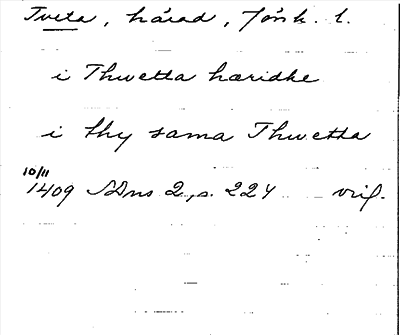 Tveta, härad, Jönk. l.
i Thwetta hæridhe
i thy sama Thwetta
10/11
1409 SDns 2, s. 224 orig.